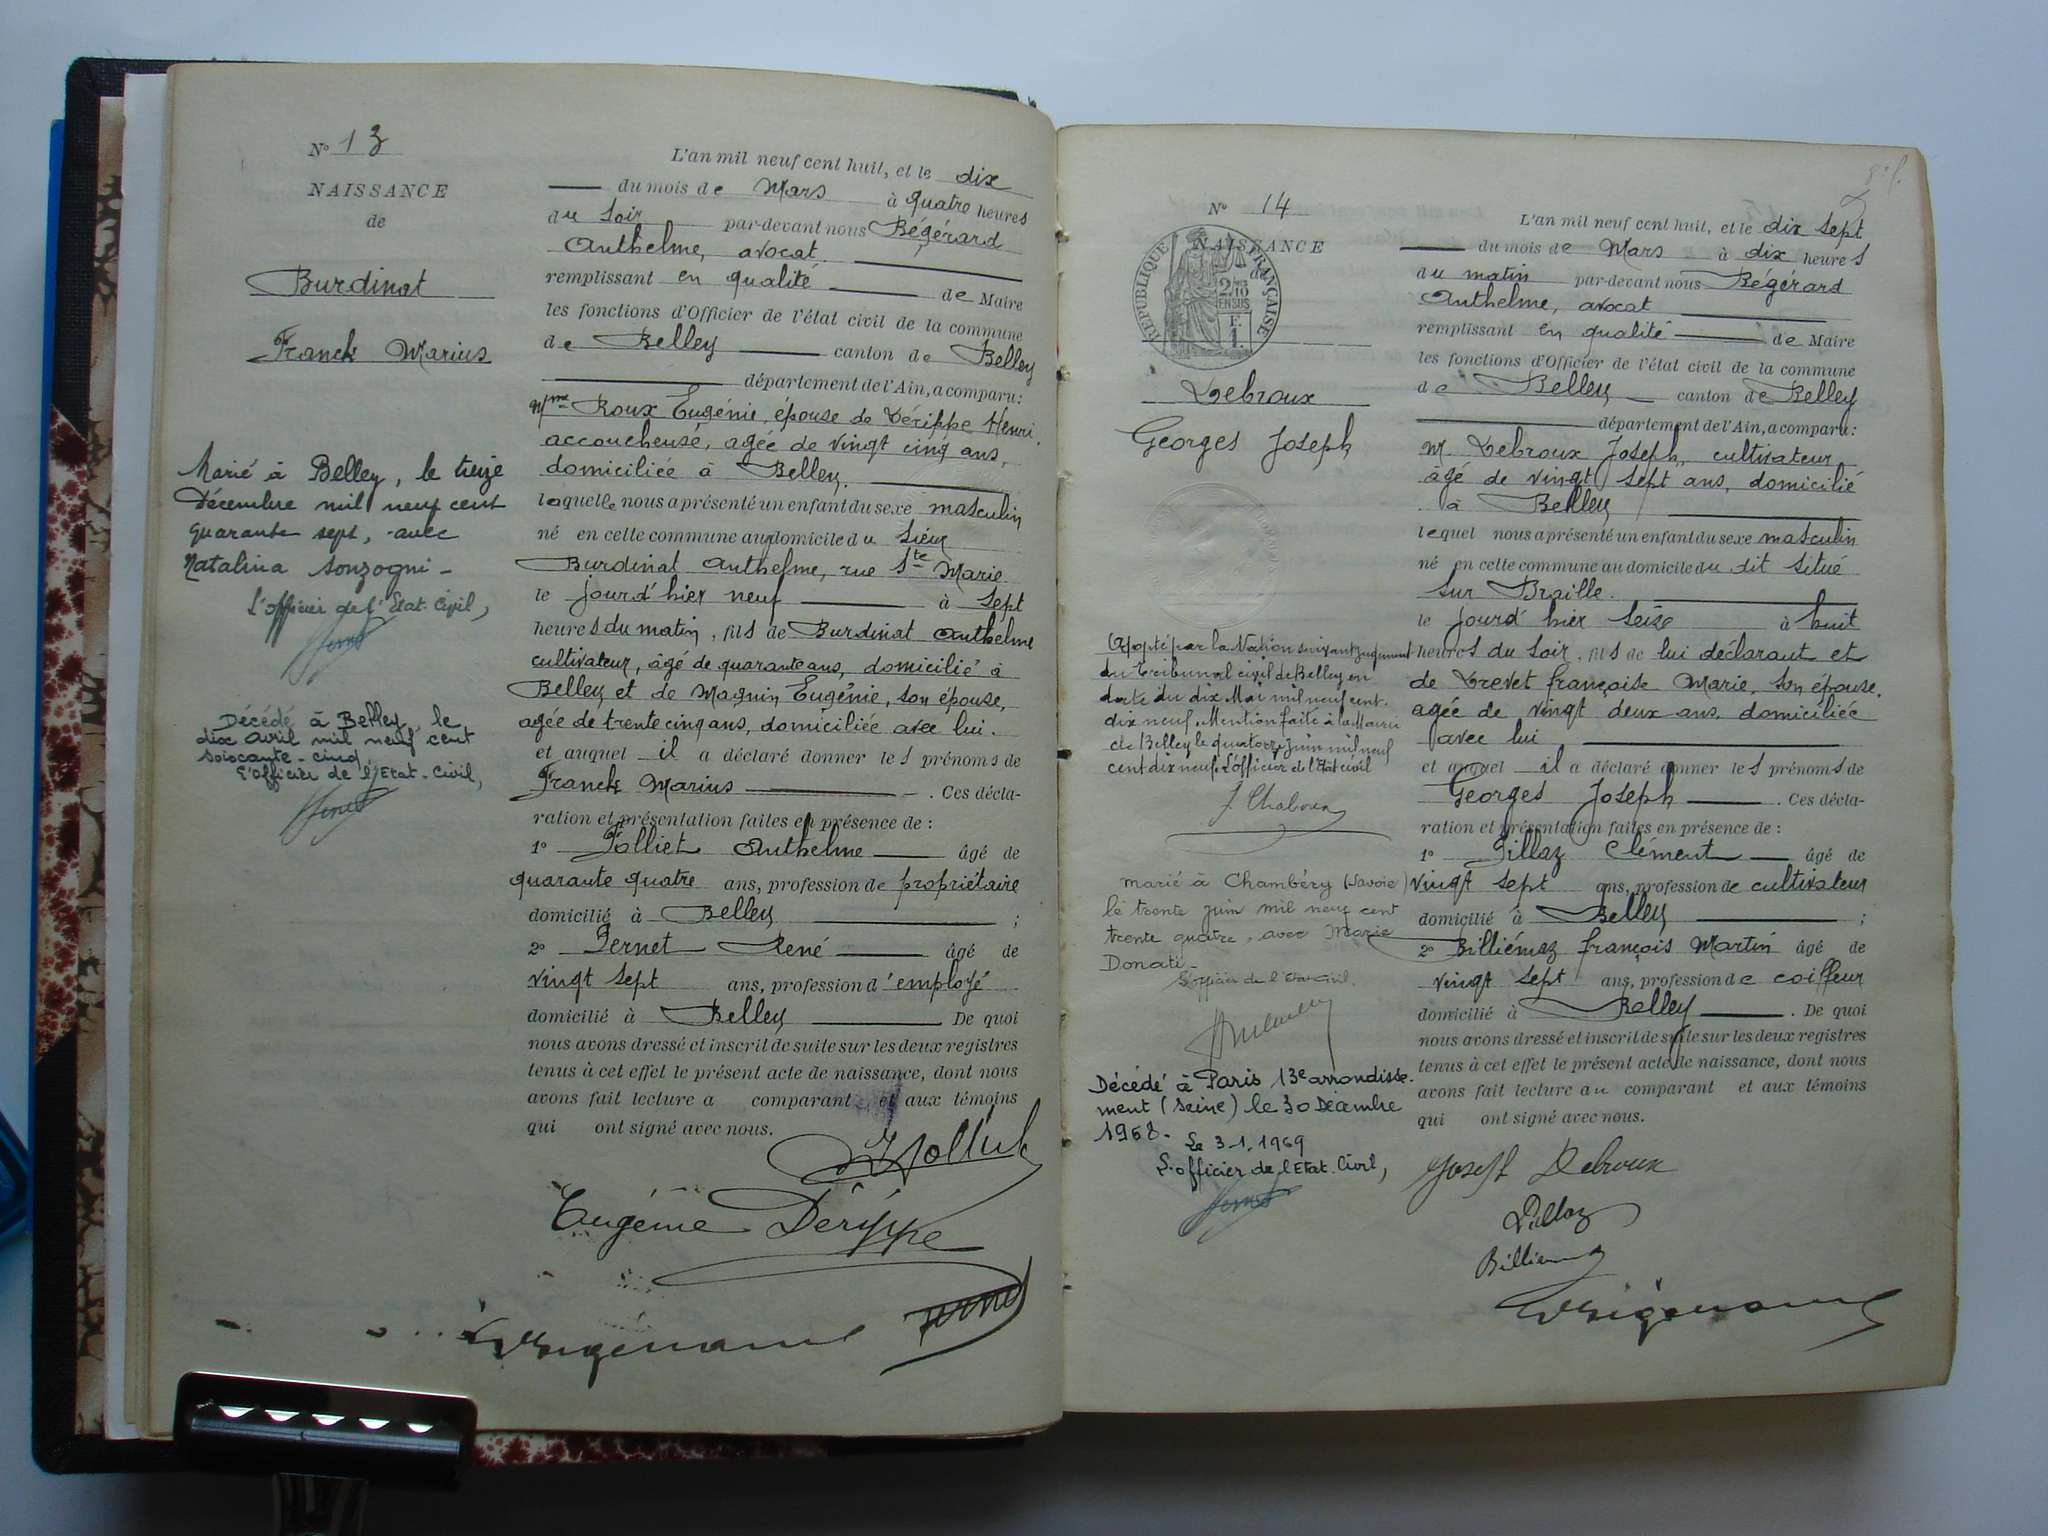 N° 13
NAISSANCE
de
Burdinat
Franck Marius
Marié à Belley, le treize
Décembre mil neuf cent
quarante sept, avec
Natalina Sonzogni -
L'officier de l'Etat-Civil,
Décédé à Belley, le
dix avril mil neuf cent
soixante-cinq.
L'officier de l'Etat-Civil,
L'an mil neuf cent huit, et le dix
du mois de Mars à quatre heures
du soir par-devant nous Bégérard
Anthelme, avocat
remplissant en qualité de Maire
les fonctions d'Officier de l'état civil de la commune
de Belley canton de Belley
département de l'Ain, a comparu:
Mme Roux Eugénie, épouse de Dérippe Henri,
accoucheuse, agée de vingt cinq ans,
domiciliée à Belley.
laquelle nous a présenté un enfant du sexe masculin
né en cette commune au domicile du sieur
Burdinat Anthelme, rue Ste Marie
le jourd'hier neuf à sept
heures du matin, fils de Burdinat Anthelme
cultivateur, âgé de quarante ans, domicilié à
Belley et de Magnin Eugénie, son épouse,
agée de trente cinq ans, domiciliée avec lui.
et auquel il a déclaré donner les prénoms de
Franck Marius . Ces décla-
ration et présentation faites en présence de :
1° Folliet Anthelme âgé de
quarante quatre ans, profession de propriétaire
domicilié à Belley ;
2° Pernet René âgé de
vingt sept ans, profession d'employé
domicilié à Belley De quoi
nous avons dressé et inscrit de suite sur les deux registres
tenus à cet effet le présent acte de naissance, dont nous
avons fait lecture a comparant et aux témoins
qui ont signé avec nous.
Eugénie Dérippe
N° 14
NAISSANCE
de
RÉPUBLIQUE FRANÇAISE
2/10
EN SUS
F.
1
Debroux
Georges Joseph
Adopté par la Nation suivant jugement
du Tribunal civil de Belley en
date du dix Mai mil neuf cent
dix neuf. Mention faite à la Mairie
de Belley le quatorze juin mil neuf
cent dix neuf. L'officier de l'Etat civil
marié à Chambéry (Savoie)
le trente juin mil neuf cent
trente quatre, avec Marie
Donati -
L'officier de l'Etat-Civil.
Décédé à Paris 13e arrondisse-
ment (Seine) le 30 Décembre
1968. Le 3-1.1969
L'officier de l'Etat-Civil,
L'an mil neuf cent huit, et le dix sept
du mois de Mars à dix heures
du matin par-devant nous Bégérard
Anthelme, avocat
remplissant en qualité de Maire
les fonctions d'Officier de l'état civil de la commune
de Belley canton de Belley
département de l'Ain, a comparu:
M. Debroux Joseph, cultivateur
âgé de vingt sept ans, domicilié
à Belley
lequel nous a présenté un enfant du sexe masculin
né en cette commune au domicile du dit situé
sur Braille.
le jourd'hier seize à huit
heures du soir, fils de lui déclarant et
de Trevet françoise Marie, son épouse,
agée de vingt deux ans, domiciliée
avec lui
et auquel il a déclaré donner les prénoms de
Georges Joseph . Ces décla-
ration et présentation faites en présence de :
1° Pillaz Clément âgé de
vingt sept ans, profession de cultivateur
domicilié à Belley ;
2° Billiémaz françois Martin âgé de
vingt sept ans, profession de coiffeur
domicilié à Belley . De quoi
nous avons dressé et inscrit de suite sur les deux registres
tenus à cet effet le présent acte de naissance, dont nous
avons fait lecture au comparant et aux témoins
qui ont signé avec nous.
Joseph Debroux
Pillaz